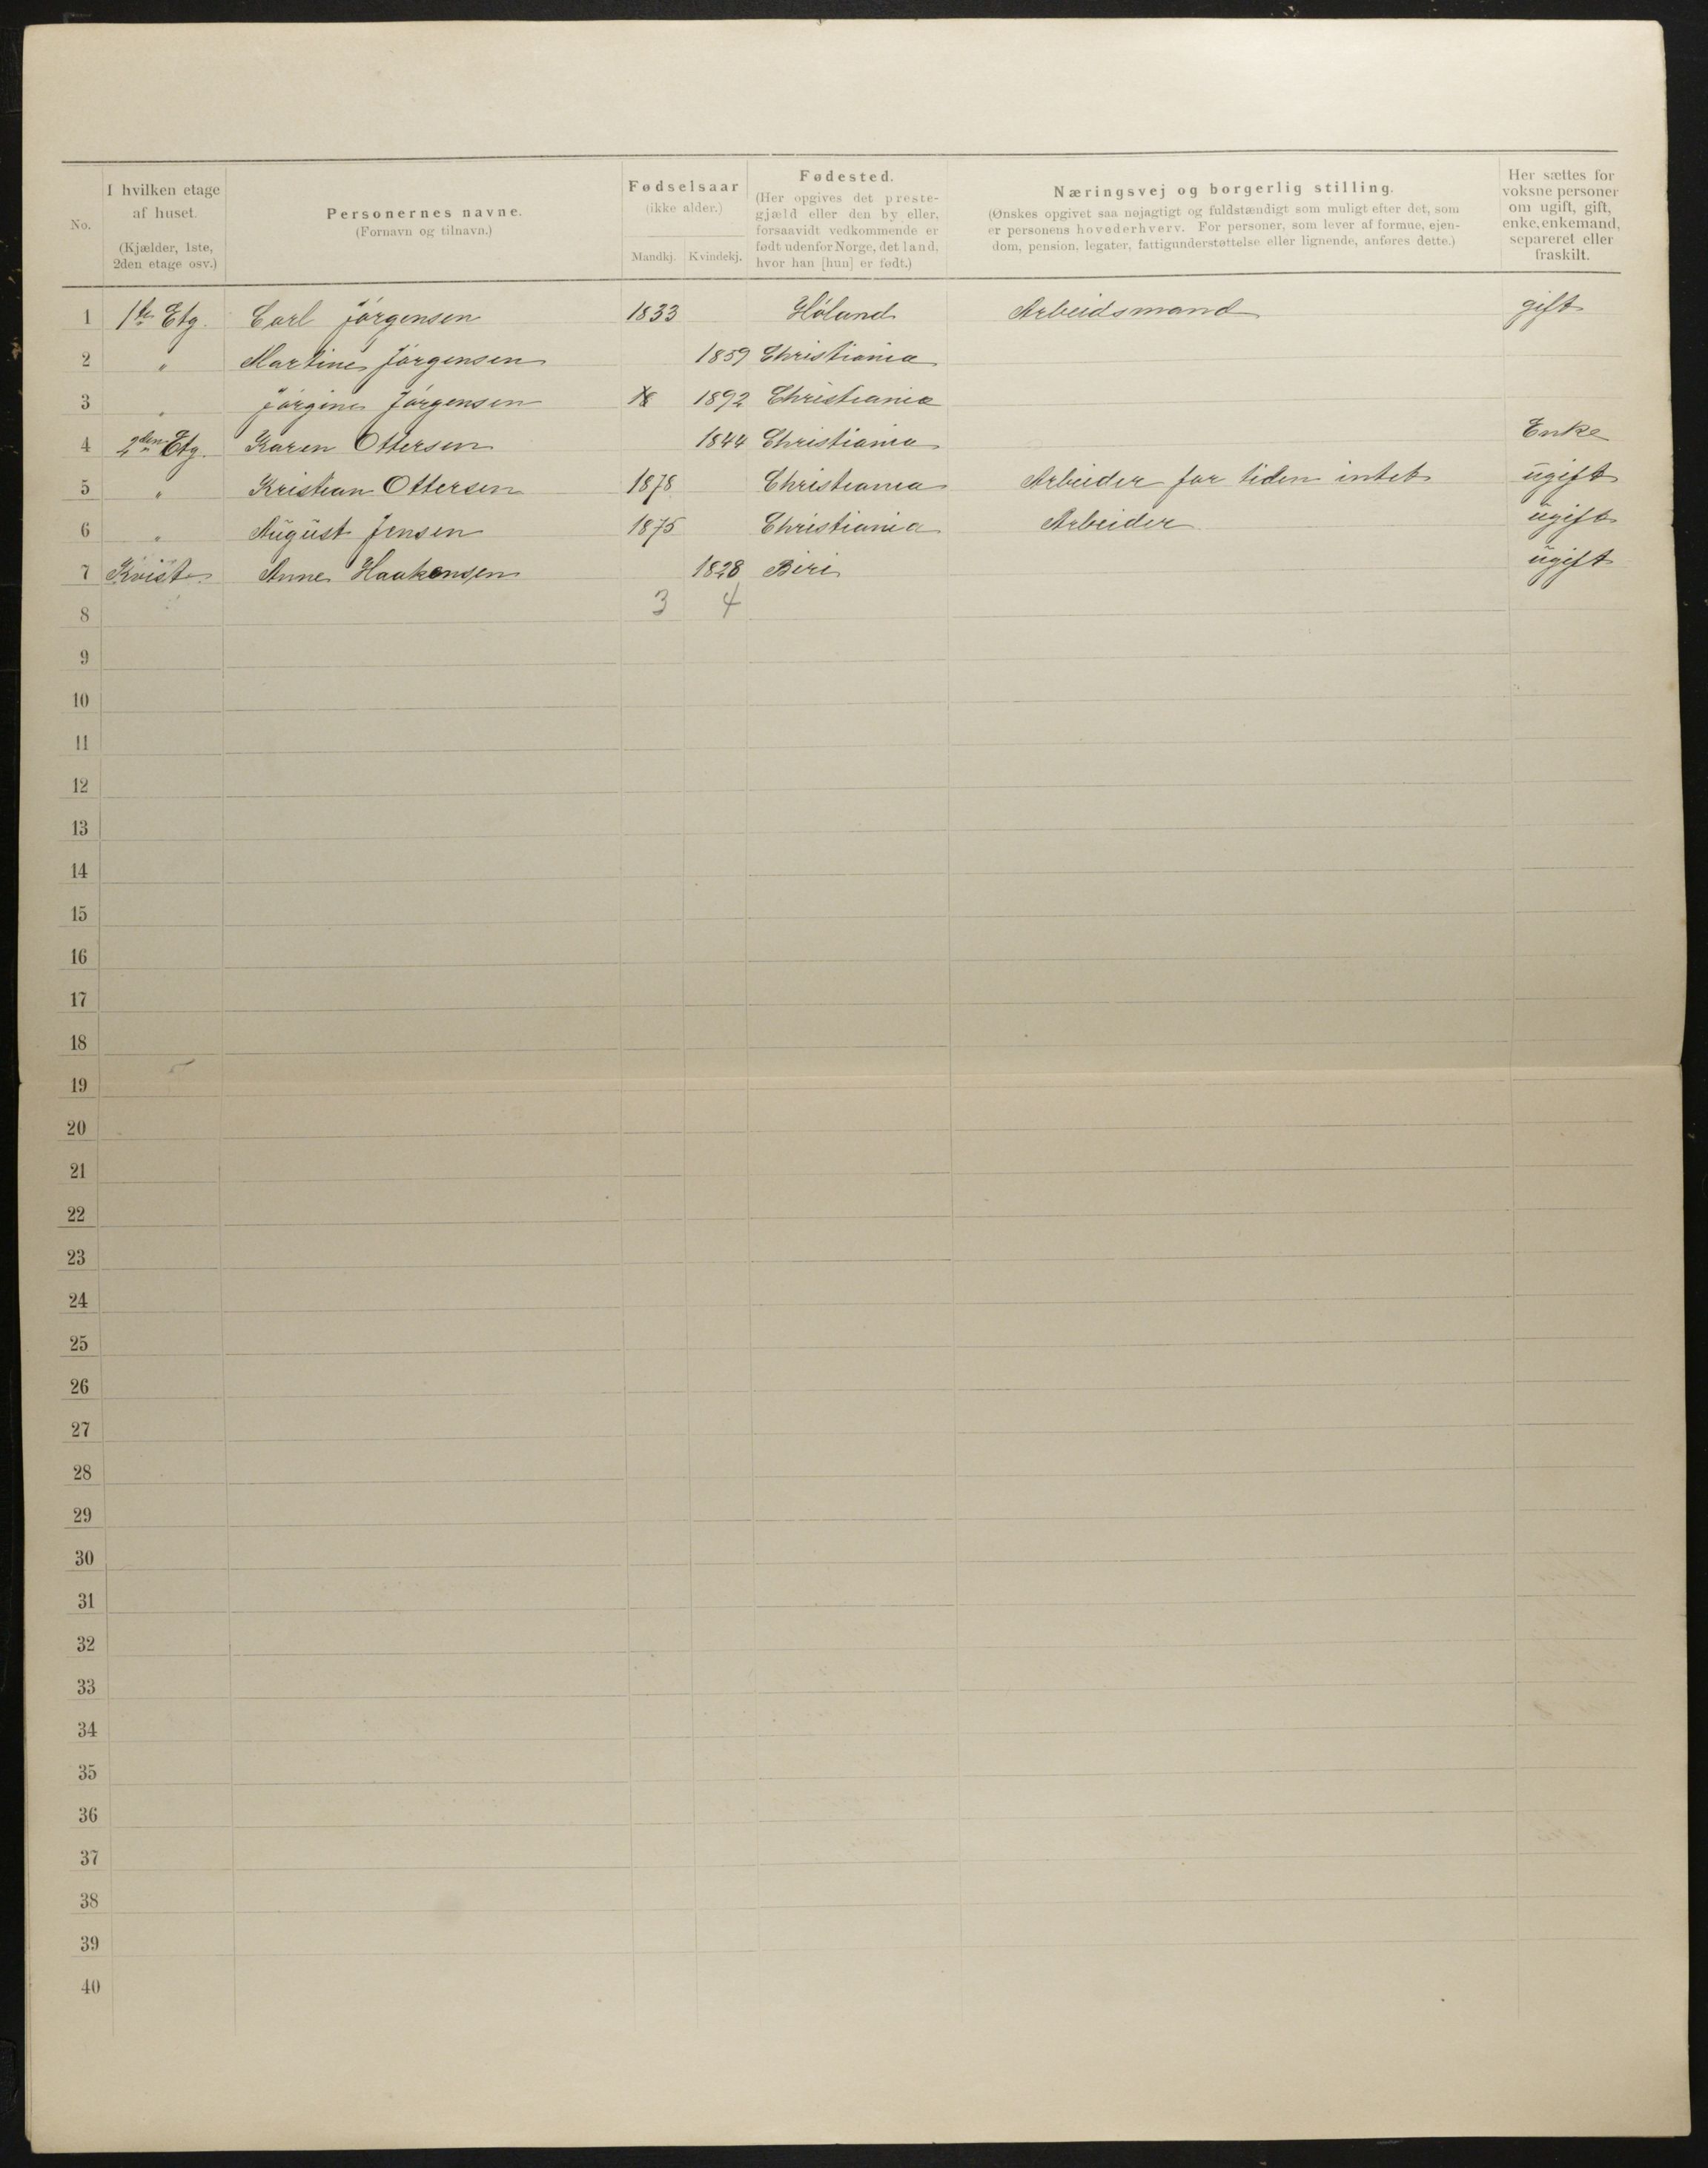 No.
I hvilken etage
af huset.
(Kjælder, 1ste,
2den etage osv.)
Personernes navne.
(Fornavn og tilnavn.)
Fødselsaar
(ikke alder.)
Mandkj. Kvindekj.
Fødested.
(Her opgives det preste-
gjæld eller den by eller,
forsaavidt vedkommende er
født udenfor Norge, det land,
hvor han [hun] er født.)
Næringsvej og borgerlig stilling.
(Ønskes opgivet saa nøjagtigt og fuldstændigt som muligt efter det, som
er personens hovederhverv. For personer, som lever af formue, ejen-
dom, pension, legater, fattigunderstøttelse eller lignende, anføres dette.)
Her sættes for
voksne personer
om ugift, gift,
enke, enkemand,
separeret eller
fraskilt.
1 1ste Etg. Carl Jørgensen 1833 Høland Arbeidsmand gift
2 " Martine Jørgensen 1859 Christiania
3 " Jørgine Jørgensen 18 1892 Christiania
4 2den Etg. Karen Ottersen 1844 Christiania Enke
5 " Kristian Ottersen 1878 Christiania Arbeider for tiden intet ugift
6 " August Jensen 1875 Christiania Arbeider ugift
7 Kvist Anne Haakensen 1828 Biri ugift
8 3 4
9
10
11
12
13
14
15
16
17
18
19
20
21
22
23
24
25
26
27
28
29
30
31
32
33
34
35
36
37
38
39
40